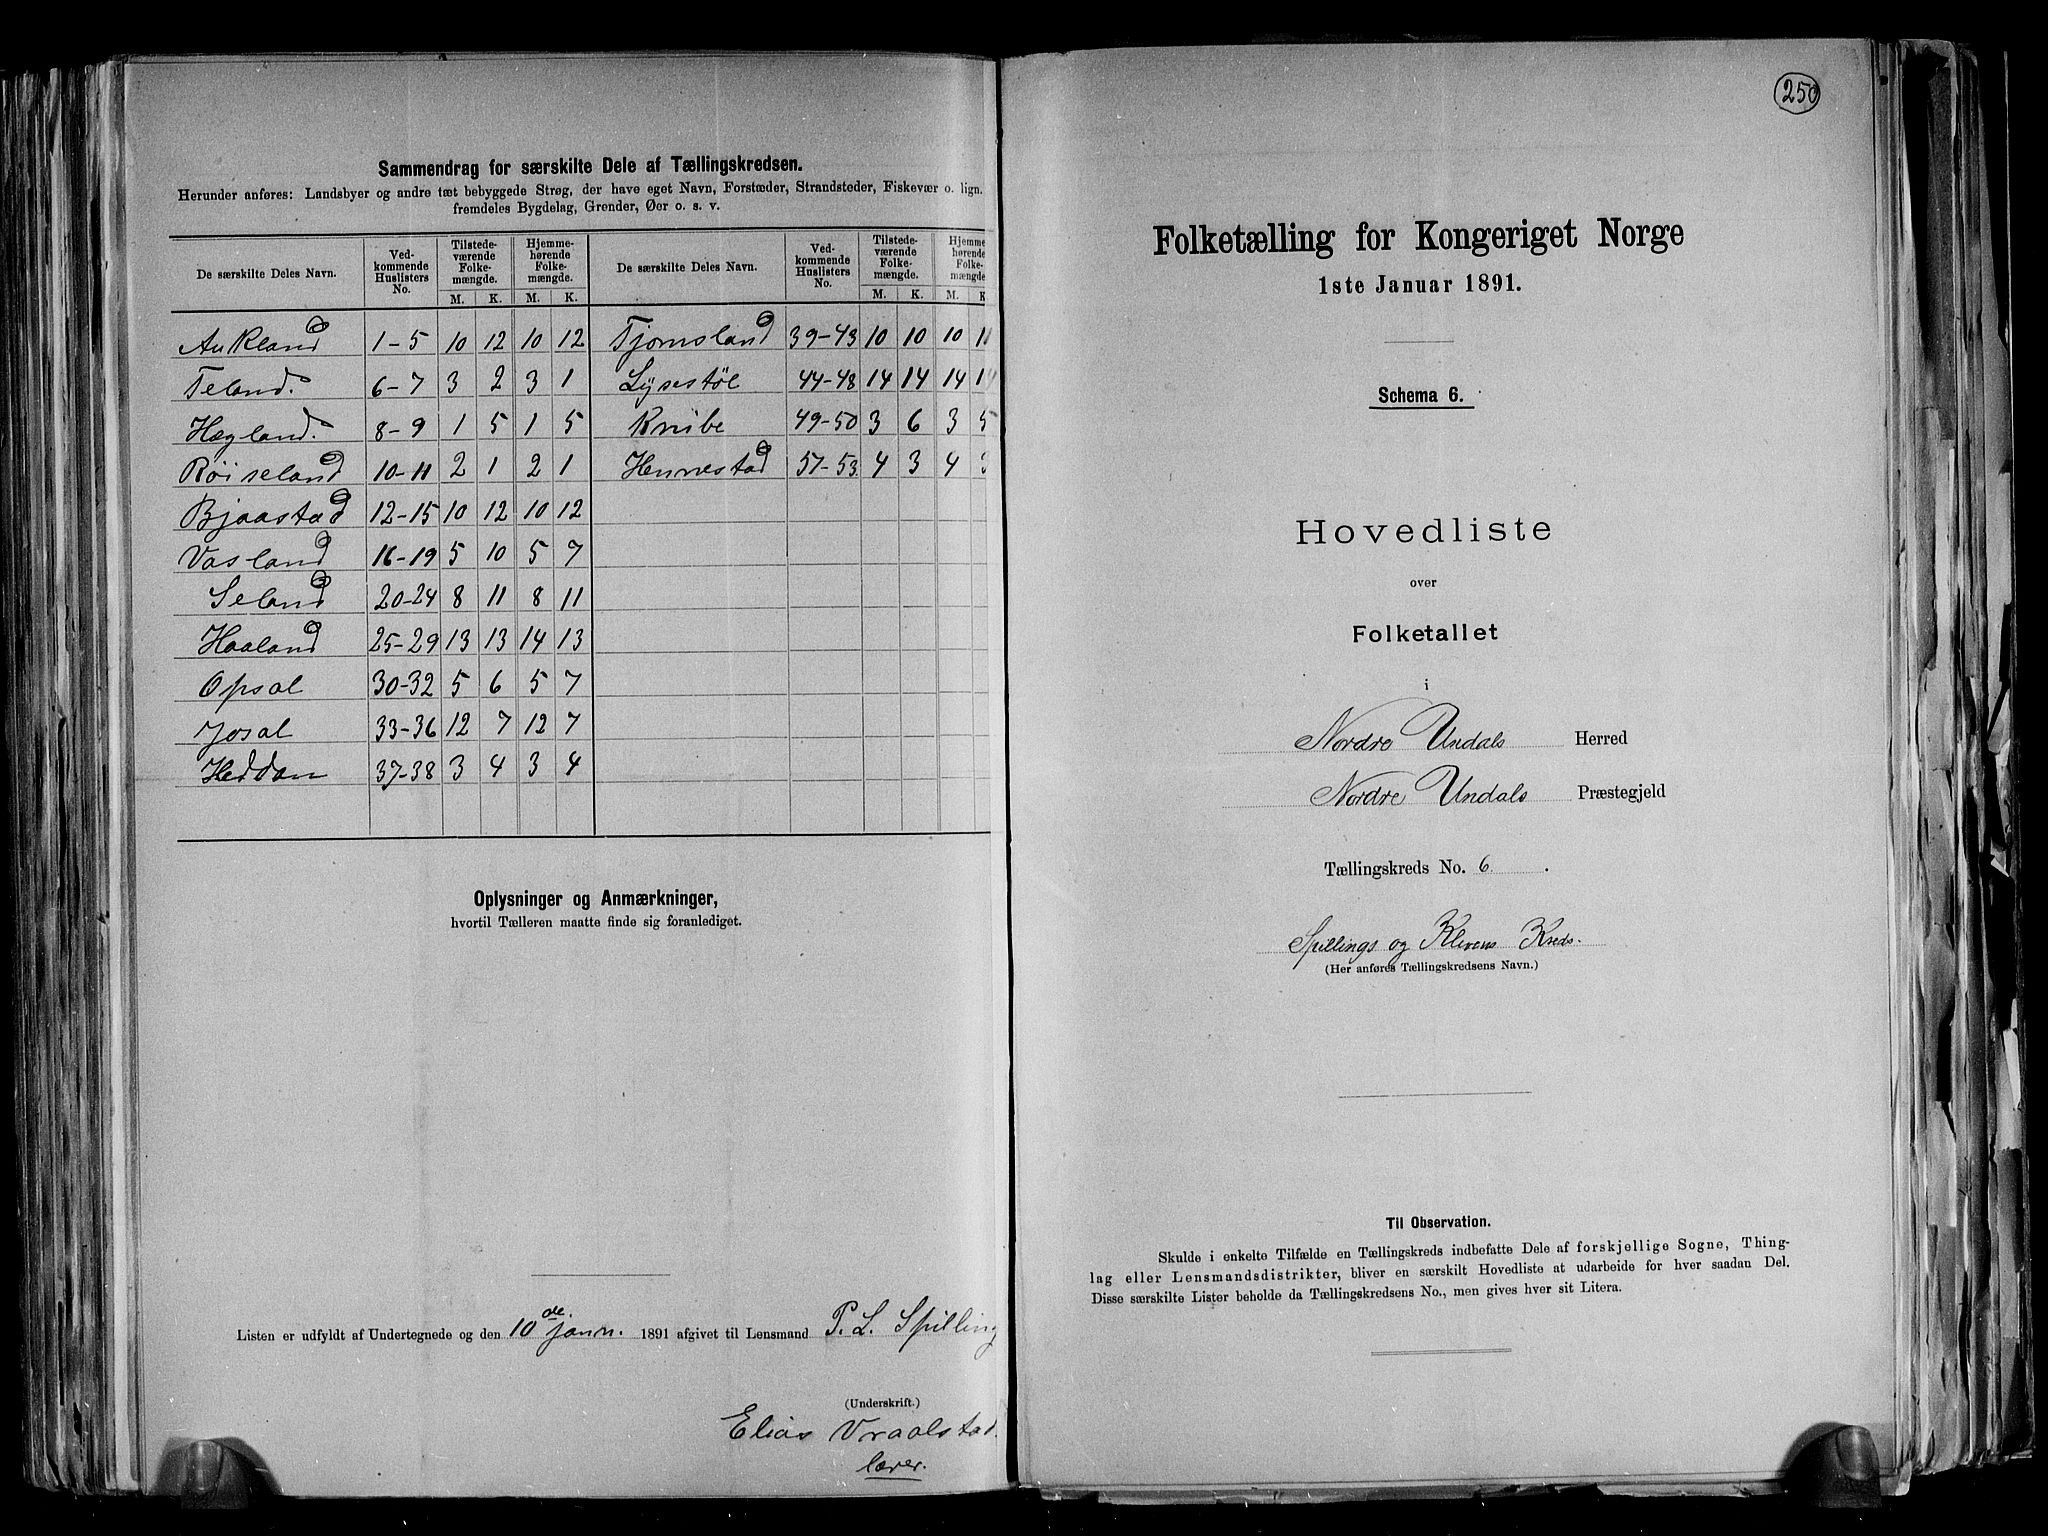 Sammendrag for særskilte Dele af Tællingskredsen.
Herunder anføres: Landsbyer og andre tæt bebyggede Strøg, der have eget Navn, Forstæder, Strandsteder, Fiskevær o. lign.
fremdeles Bygdelag, Grender, Øer o. s. v.
De særskilte Deles Navn. Ved-kommende Huslisters No. Tilstede-værende Folke-mængde. M. K. Hjemme-hørende Folke-mængde. M. K. De særskilte Deles Navn. Ved-kommende Huslisters No. Tilstede-værende Folke-mængde. M. K. Hjemme hørende Folke-mængde M. K
Aukland 1-5 10 12 10 12 Tjomsland 39-43 10 10 10
Teland. 6-7 3 2 3 1 Lysestøl 44-48 14 14 14 14
Hægland. 8-9 1 5 1 5 Knibe 49-50 3 6 3 5
Røiseland 10-11 2 1 2 1 Hennestad 51-53 4 3 4 3
Bjaastad 12-15 10 12 10 12
Vasland 16-19 5 10 5 7
Seland 20-24 8 11 8 11
Haaland 25-29 13 13 14 13
Opsal 30-32 5 6 5 7
Josal 33-36 12 7 12 7
Heddan 37-38 3 4 3 4
Oplysninger og Anmærkninger,
hvortil Tælleren maatte finde sig foranlediget.
Listen er udfyldt af Undertegnede og den 10de janr. 1891 afgivet til Lensmand P. L. Spilling
(Underskrift.)
Elias Vraalstad
lærer.
250
Folketælling for Kongeriget Norge
1ste Januar 1891.
Schema 6.
Hovedliste
over
Folketallet
i
Nordre Undals Herred
Nordre Undals Præstegjeld
Tællingskreds No. 6.
Spillings og Klevens Kreds.
(Her anføres Tællingskredsens Navn.)
Til Observation.
Skulde i enkelte Tilfælde en Tællingskreds indbefatte Dele af forskjellige Sogne, Thing-
lag eller Lensmandsdistrikter, bliver en særskilt Hovedliste at udarbeide for hver saadan Del.
Disse særskilte Lister beholde da Tællingskredsens No., men gives hver sit Litera.